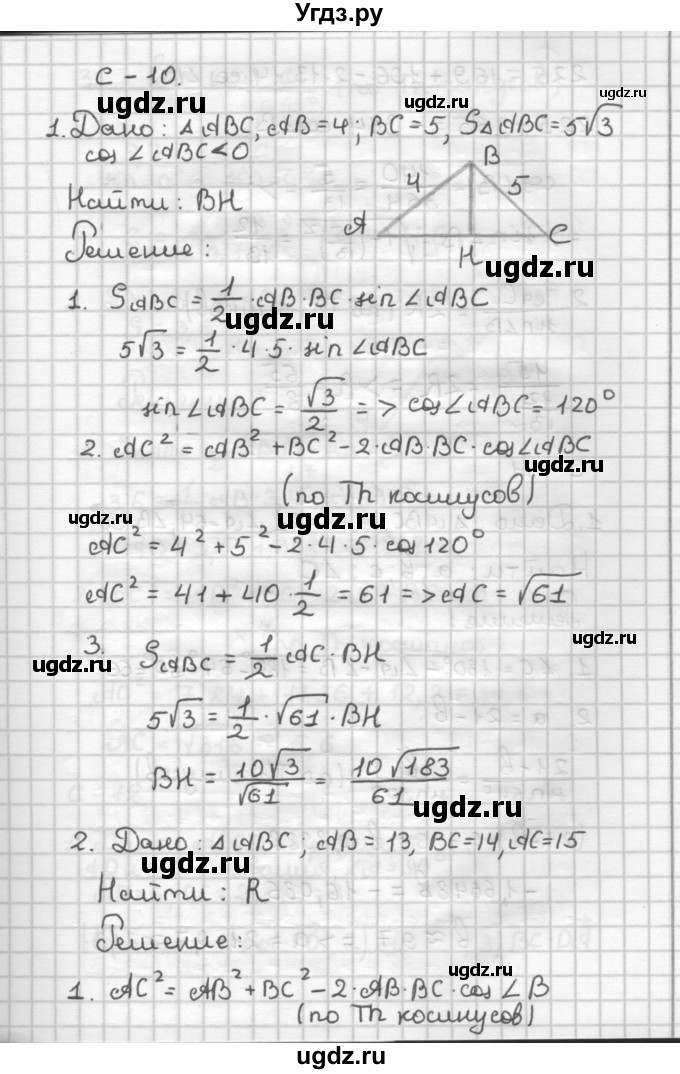 Угдз.ру
С - 10.
ugdz.ru
1. Дано: △ABC, AB=4; BC=5, S△ABC=5√3
cos ∠ABC<0
Найти: BH
B
4
5
A
C
H
Решение:
ugdz.ru
1. S ABC = 1/2 · AB · BC · sin ∠ABC
ugdz.ru
5√3 = 1/2 · 4 · 5 · sin ∠ABC
sin ∠ABC = √3/2 => cos∠ABC = 120°
2. AC² = AB² + BC² - 2·AB·BC · cos∠ABC
ugdz.ru
(по Th косинусов)
ugdz.ru
ugdz.ru
AC² = 4² + 5² - 2 · 4 · 5 · cos 120°
AC² = 41 + 40 · 1/2 = 61 => AC = √61
3. S ABC = 1/2 AC · BH
ugdz.ru
ugdz.ru
5√3 = 1/2 · √61 · BH
BH = 10√3/√61 = 10√183/61
ugdz.ru
2. Дано: △ABC; AB = 13, BC=14, AC=15
ugdz.ru
Найти: R
Решение:
ugdz.ru
1. AC² = AB² + BC² - 2·AB·BC · cos ∠B
(по Th косинусов)
ugdz.ru